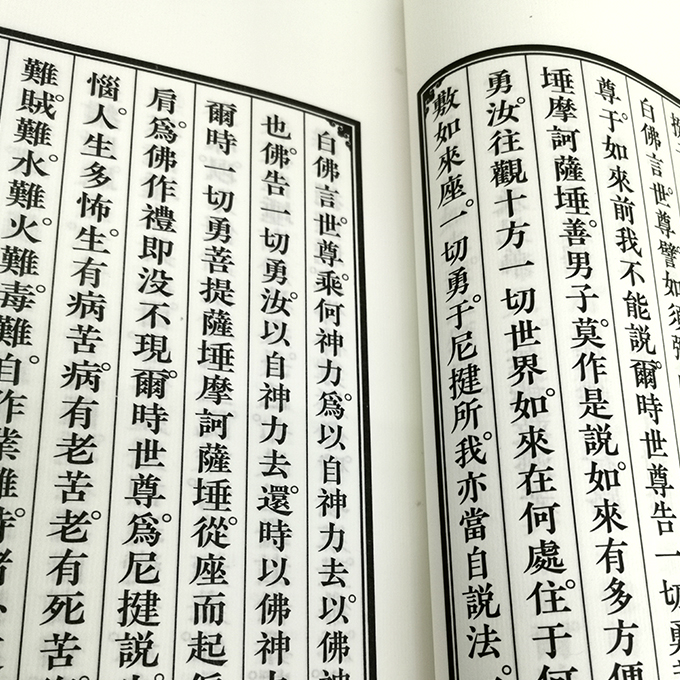 白佛言。世尊。譬如須彌
尊。于如來前。我不能說。爾時世尊告一切勇菩
埵摩訶薩埵。善男子。莫作是說。如來有多方便
勇。汝往觀十方一切世界。如來在何處住。于何
敷如來座。一切勇。于尼揵所。我亦當自說法。
白佛言。世尊。乘何神力。爲以自神力去。以佛神
也。佛告一切勇。汝以自神力去。還時以佛神
爾時一切勇菩提薩埵摩訶薩埵。從座而起。
肩。爲佛作禮。即没不現。爾時世尊。爲尼揵說
惱。人生多怖。生有病苦。病有老苦。老有死苦
難。賊難。水難。火難。毒難。自作業難。時諸